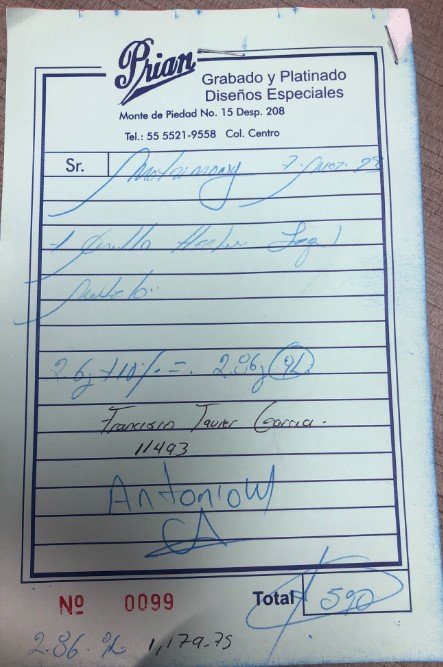 Prian
Grabado y Platinado
Diseños Especiales
Monte de Piedad No. 15 Desp. 208
Tel.: 55 5521-9558 Col. Centro
Sr.
7
1 Anillo
2.6g +10% = 2.86g
Francisco Javier Garcia.
11493
Antonio
Nº 0099 Total 590
2.86. 1,179.75